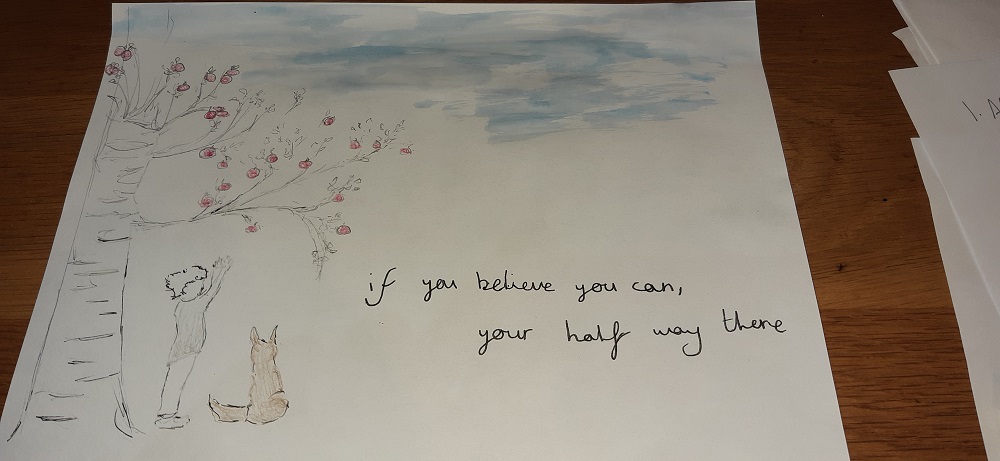 if you believe you can,
your half way there
1. A